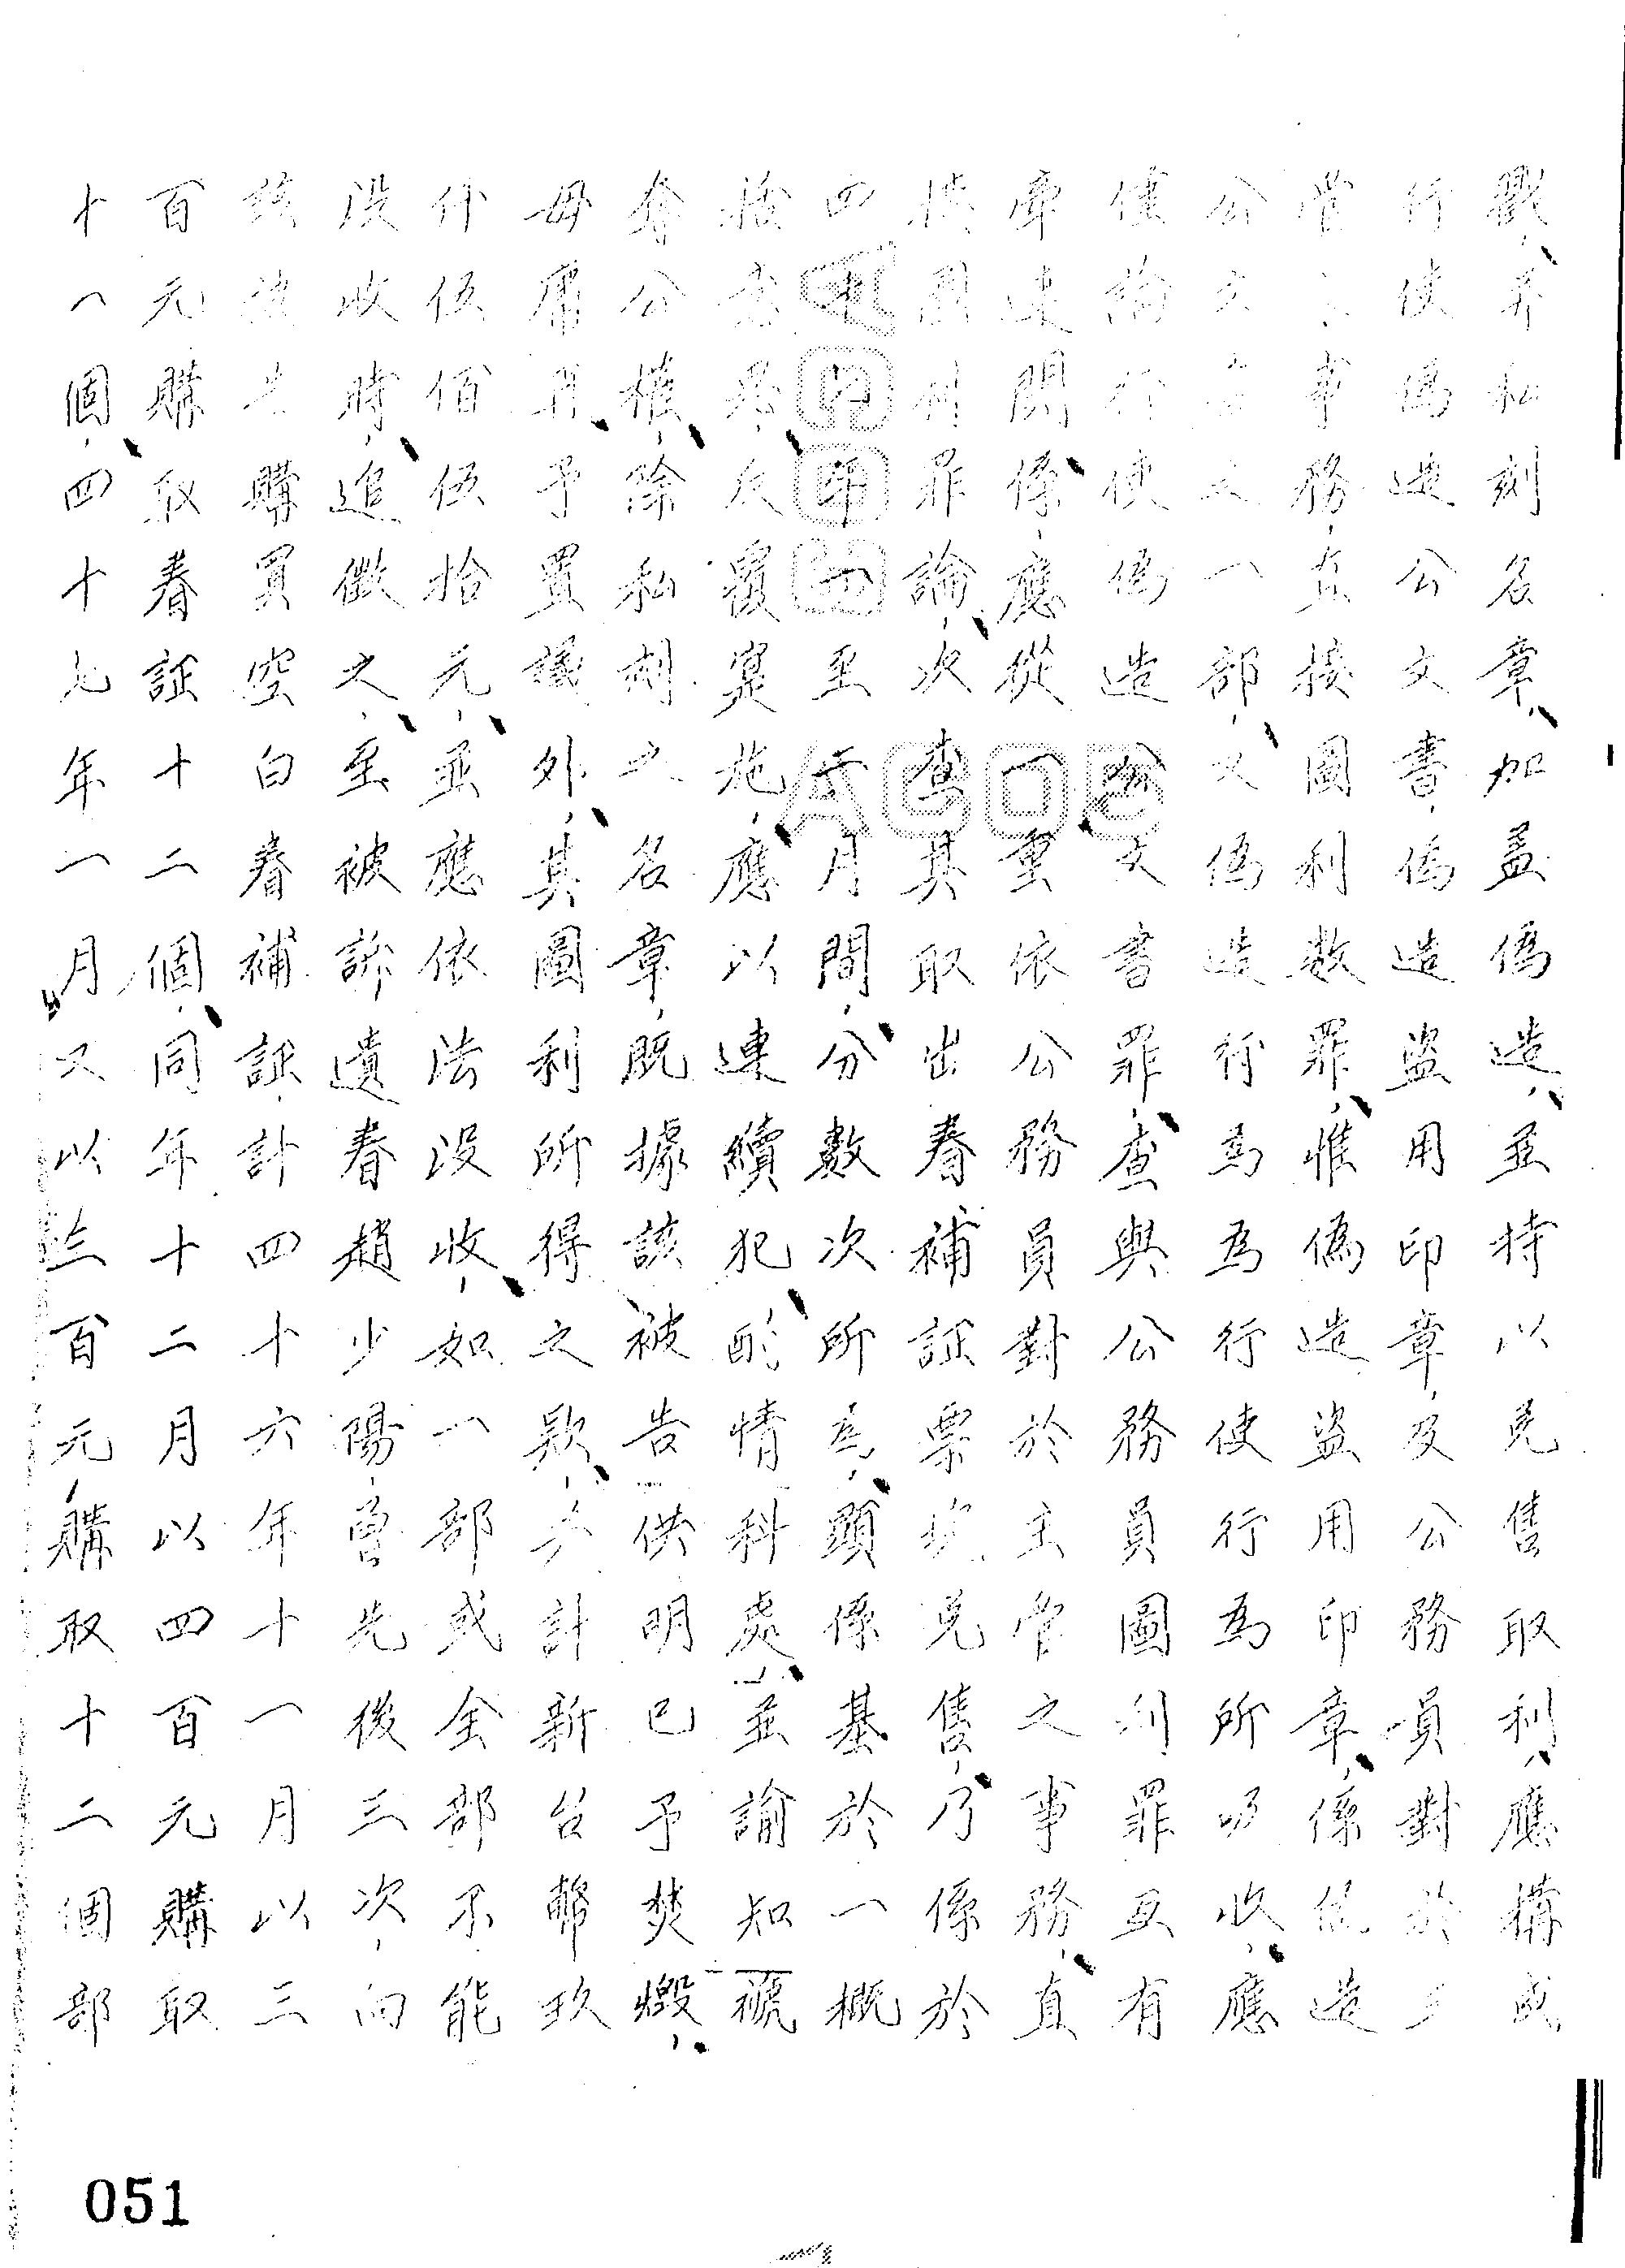 戳、并私刻名章、加盖偽造、並持以兜售取利、應構成
行使偽造公文書、偽造盜用印章、及公務員對於
管之事務、直接圖利數罪、惟偽造盜用印章、係偽造
公文書之一部、又偽造行為為行使行為所吸收、應
僅論行使偽造公文書罪、查與公務員圖利罪互有
牽連關係、應從一重依公務員對於主管之事務、直
接圖利罪論、次查其取出眷補証票兜售、乃係於
四十一至二月間、分數次所為、顯係基於一概
括意思、反覆實施、應以連續犯酌情科處、並諭知褫
奪公權、除私刻之名章、既據該被告供明已予焚燬、
毋庸再予置議外、其圖利所得之款、共計新台幣玖
仟伍佰伍拾元、並應依法沒收、如一部或全部不能
沒收時、追徵之、至被訴遺眷趙少陽、曾先後三次、向
該被告購買空白眷補証、計四十六年十一月以三
百元購取眷証十二個、同年十二月以四百元購取
十八個、四十七年一月又以三百元、購取十二個部
051